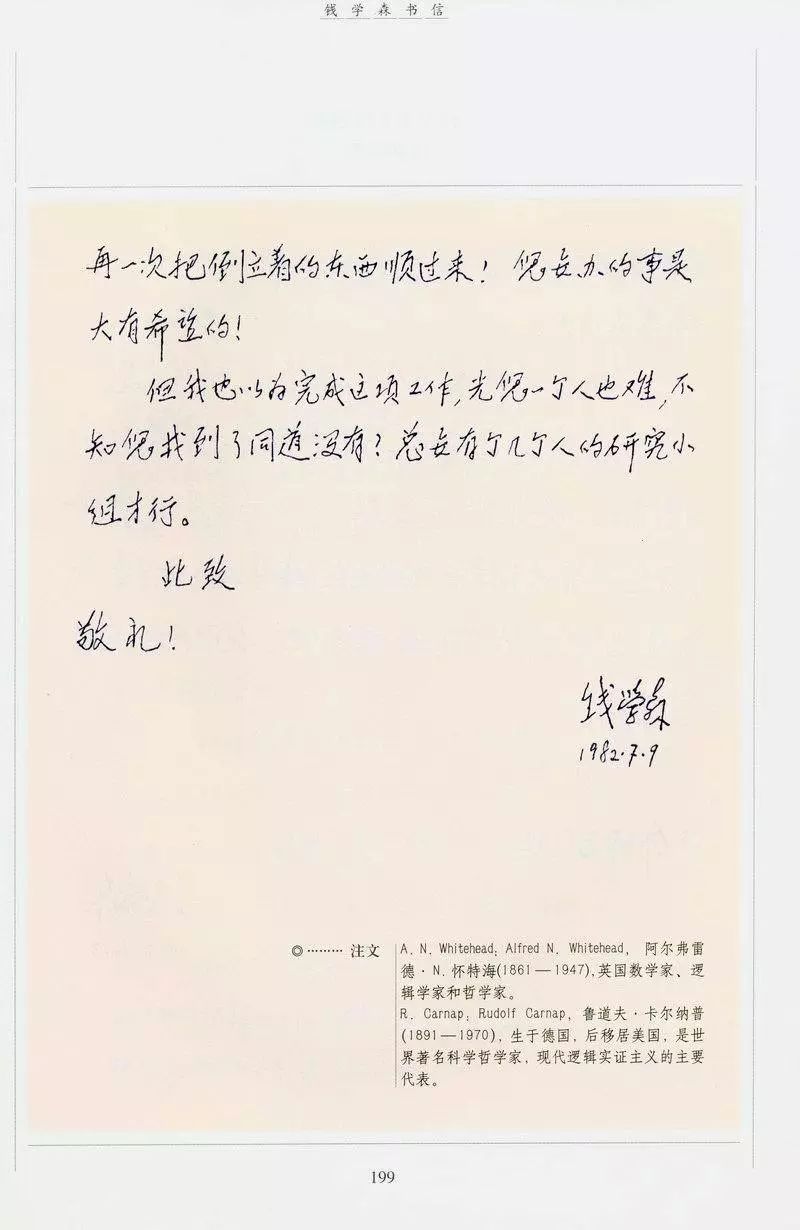 钱学森书信
再一次把倒立着的东西顺过来！您要办的事是
大有希望的！
但我也以为完成这项工作,光您一个人也难,不
知您找到了同道没有？总要有个几个人的研究小
组才行。
此致
敬礼！
钱学森
1982.7.9
◎ ……… 注文
A. N. Whitehead; Alfred N. Whitehead， 阿尔弗雷
德·N. 怀特海(1861—1947),英国数学家、逻
辑学家和哲学家。
R. Carnap; Rudolf Carnap，鲁道夫·卡尔纳普
(1891—1970)，生于德国，后移居美国，是世
界著名科学哲学家，现代逻辑实证主义的主要
代表。
199